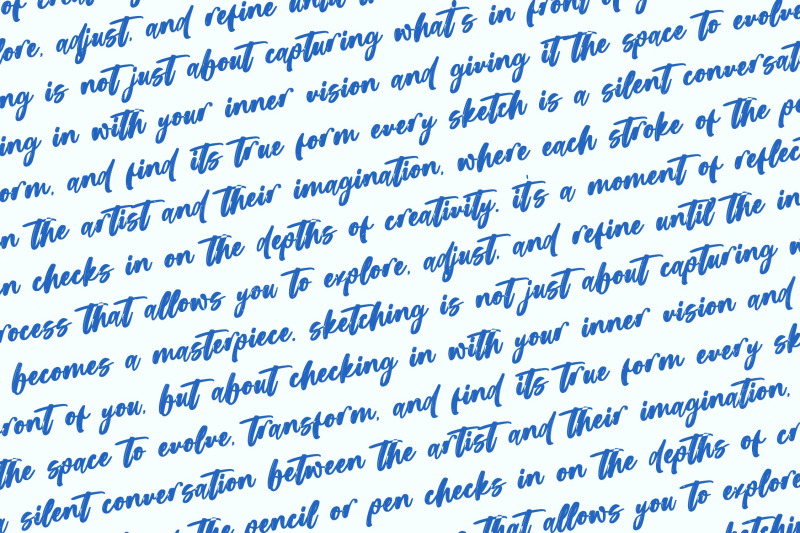 of
lore, adjust, and refine until
ng is not just about capturing what's in front of
ing in with your inner vision and giving it the space to evolve
orm, and find its true form every sketch is a silent conversat
n the artist and their imagination, where each stroke of the pe
n checks in on the depths of creativity. it's a moment of reflec
rocess that allows you to explore, adjust, and refine until the in
becomes a masterpiece. sketching is not just about capturing w
ront of you, but about checking in with your inner vision and
the space to evolve, transform, and find its true form every sk
a silent conversation between the artist and their imagination,
the pencil or pen checks in on the depths of cr
that allows you to explore